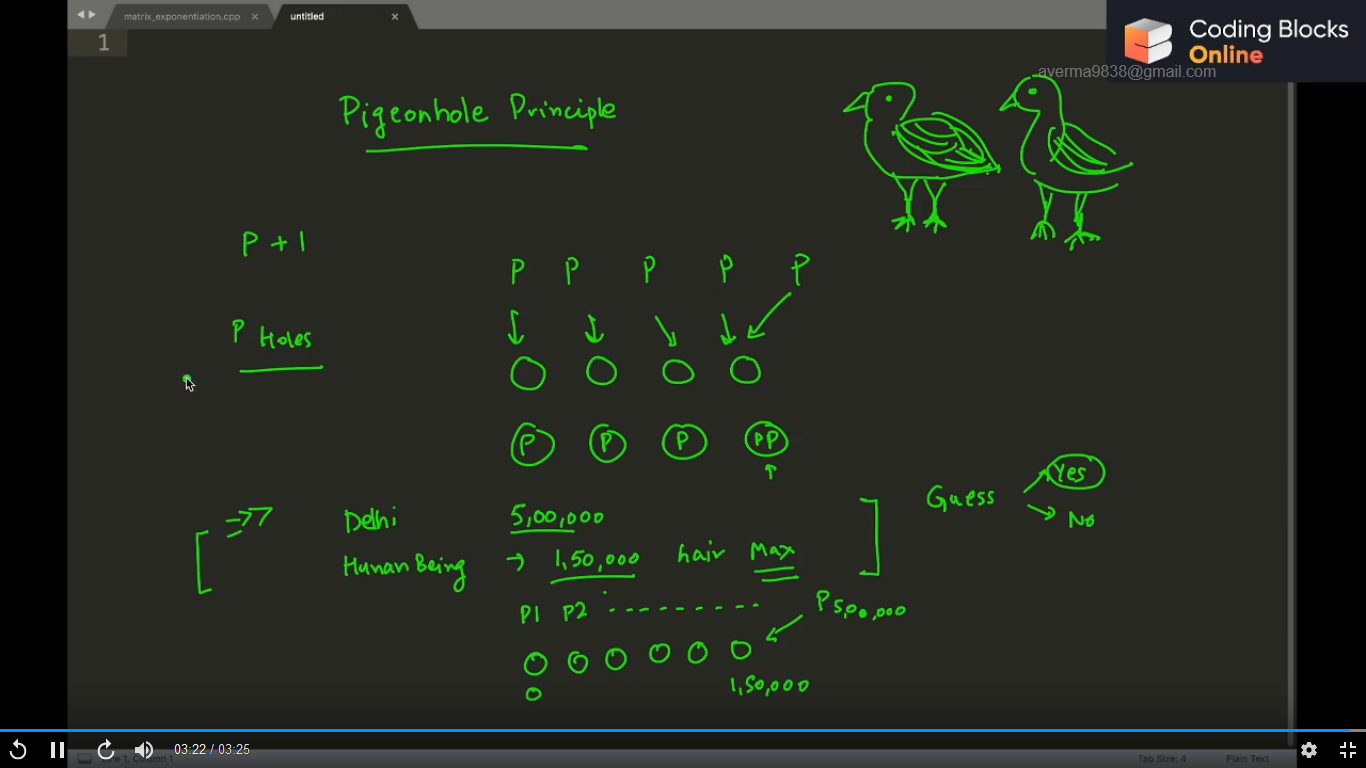 matrix_exponentiation.cpp × untitled ×
Coding Blocks
Online
averma9838@gmail.com
1
Pigeonhole Principle
P + 1
P P P P P
P Holes
P P P PP
Guess Yes
No
Delhi 5,00,000
Human Being → 1,50,000 hair Max
P1 P2 - - - - - - - - - P5,00,000
0 1,50,000
03:22 / 03:25
Line 1, Column 1 Tab Size: 4 Plain Text